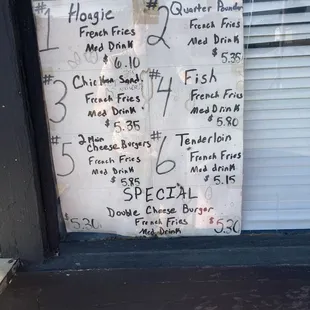 #1 Hoagie
French Fries
Med Drink
$ 6.10
#2 Quarter Pounder
French Fries
Med Drink
$ 5.35
#3 Chicken Sand
French Fries
Med Drink
$ 5.35
#4 Fish
French Fries
Med Drink
$ 5.80
#5 2 Mini
Cheese Burgers
French Fries
Med Drink
$ 5.85
#6 Tenderloin
French Fries
Med drink
$ 5.15
SPECIAL
Double Cheese Burger
French Fries
Med Drink
$5.30
$5.30